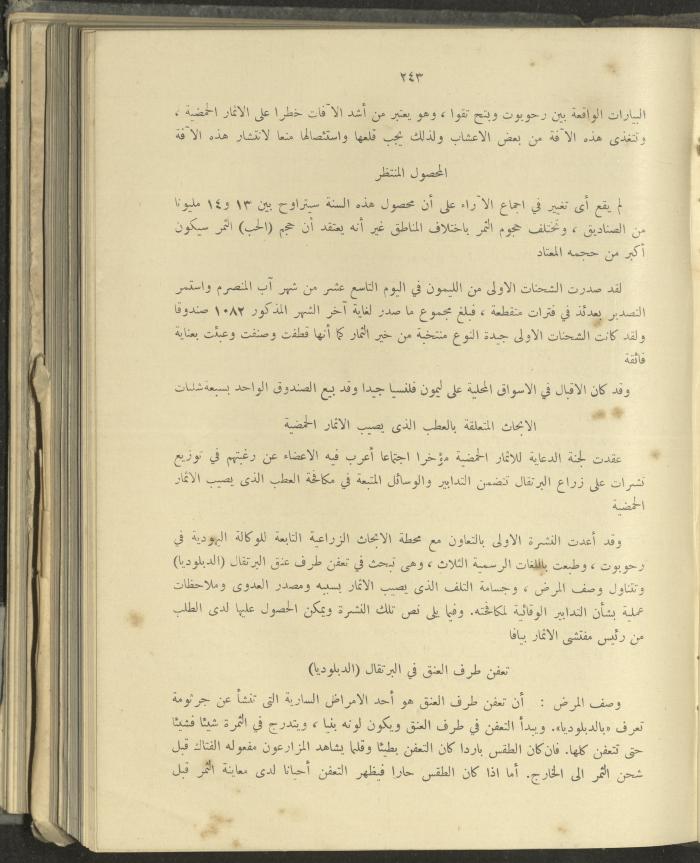 ٢٤٣
البيارات الواقعة بين رحوبوت وبتح تقوا ، وهو يعتبر من أشد الآفات خطرا على الاثمار الحمضية ،
وتتغذى هذه الآفة من بعض الاعشاب ولذلك يجب قلعها واستئصالها منعا لانتشار هذه الآفة
المحصول المنتظر
لم يقع أى تغيير في اجماع الآراء على أن محصول هذه السنة سيتراوح بين ١٣ و١٤ مليونا
من الصناديق ، وتختلف حجوم الثمر باختلاف المناطق غير أنه يعتقد أن حجم (الحب) الثمر سيكون
أكبر من حجمه المعتاد
لقد صدرت الشحنات الاولى من الليمون في اليوم التاسع عشر من شهر آب المنصرم واستمر
التصدير بعدئذ في فترات متقطعة ، فبلغ مجموع ما صدر لغاية آخر الشهر المذكور ١٠٨٢ صندوقا
ولقد كانت الشحنات الاولى جيدة النوع منتخبة من خير الثمار كما أنها قطفت وصنفت وعبئت بعناية
فائقة
وقد كان الاقبال في الاسواق المحلية على ليمون فلنسيا جيدا وقد بيع الصندوق الواحد بسبعة شلنات
الابحاث المتعلقة بالعطب الذى يصيب الاثمار الحمضية
عقدت لجنة الدعاية للاثمار الحمضية مؤخرا اجتماعا أعرب فيه الاعضاء عن رغبتهم في توزيع
نشرات على زراع البرتقال تتضمن التدابير والوسائل المتبعة في مكافحة العطب الذى يصيب الاثمار
الحمضية
وقد أعدت النشرة الاولى بالتعاون مع محطة الابحاث الزراعية التابعة للوكالة اليهودية في
رحوبوت ، وطبعت باللغات الرسمية الثلاث ، وهى تبحث في تعفن طرف عنق البرتقال (الدبلوديا)
وتتناول وصف المرض ، وجسامة التلف الذى يصيب الاثمار بسببه ومصدر العدوى وملاحظات
عملية بشأن التدابير الوقائية لمكافحته. وفيما يلى نص تلك النشرة ويمكن الحصول عليها لدى الطلب
من رئيس مفتشى الاثمار بيافا
تعفن طرف العنق في البرتقال (الدبلوديا)
وصف المرض : أن تعفن طرف العنق هو أحد الامراض السارية التى تنشأ عن جرثومة
تعرف «بالدبلوديا». ويبدأ التعفن في طرف العنق ويكون لونه بنيا ، ويتدرج في الثمرة شيئا فشيئا
حتى تتعفن كلها. فان كان الطقس باردا كان التعفن بطيئا وقلما يشاهد المزارعون مفعوله الفتاك قبل
شحن الثمر الى الخارج. أما اذا كان الطقس حارا فيظهر التعفن أحيانا لدى معاينة الثمر قبل